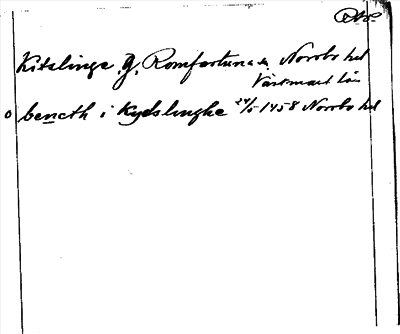 Kitslinge, g, Romfartuna sn Norrbo hd
Västmanl län
o bencth i Kydslinghe 24/5 1458 Norrbo hd